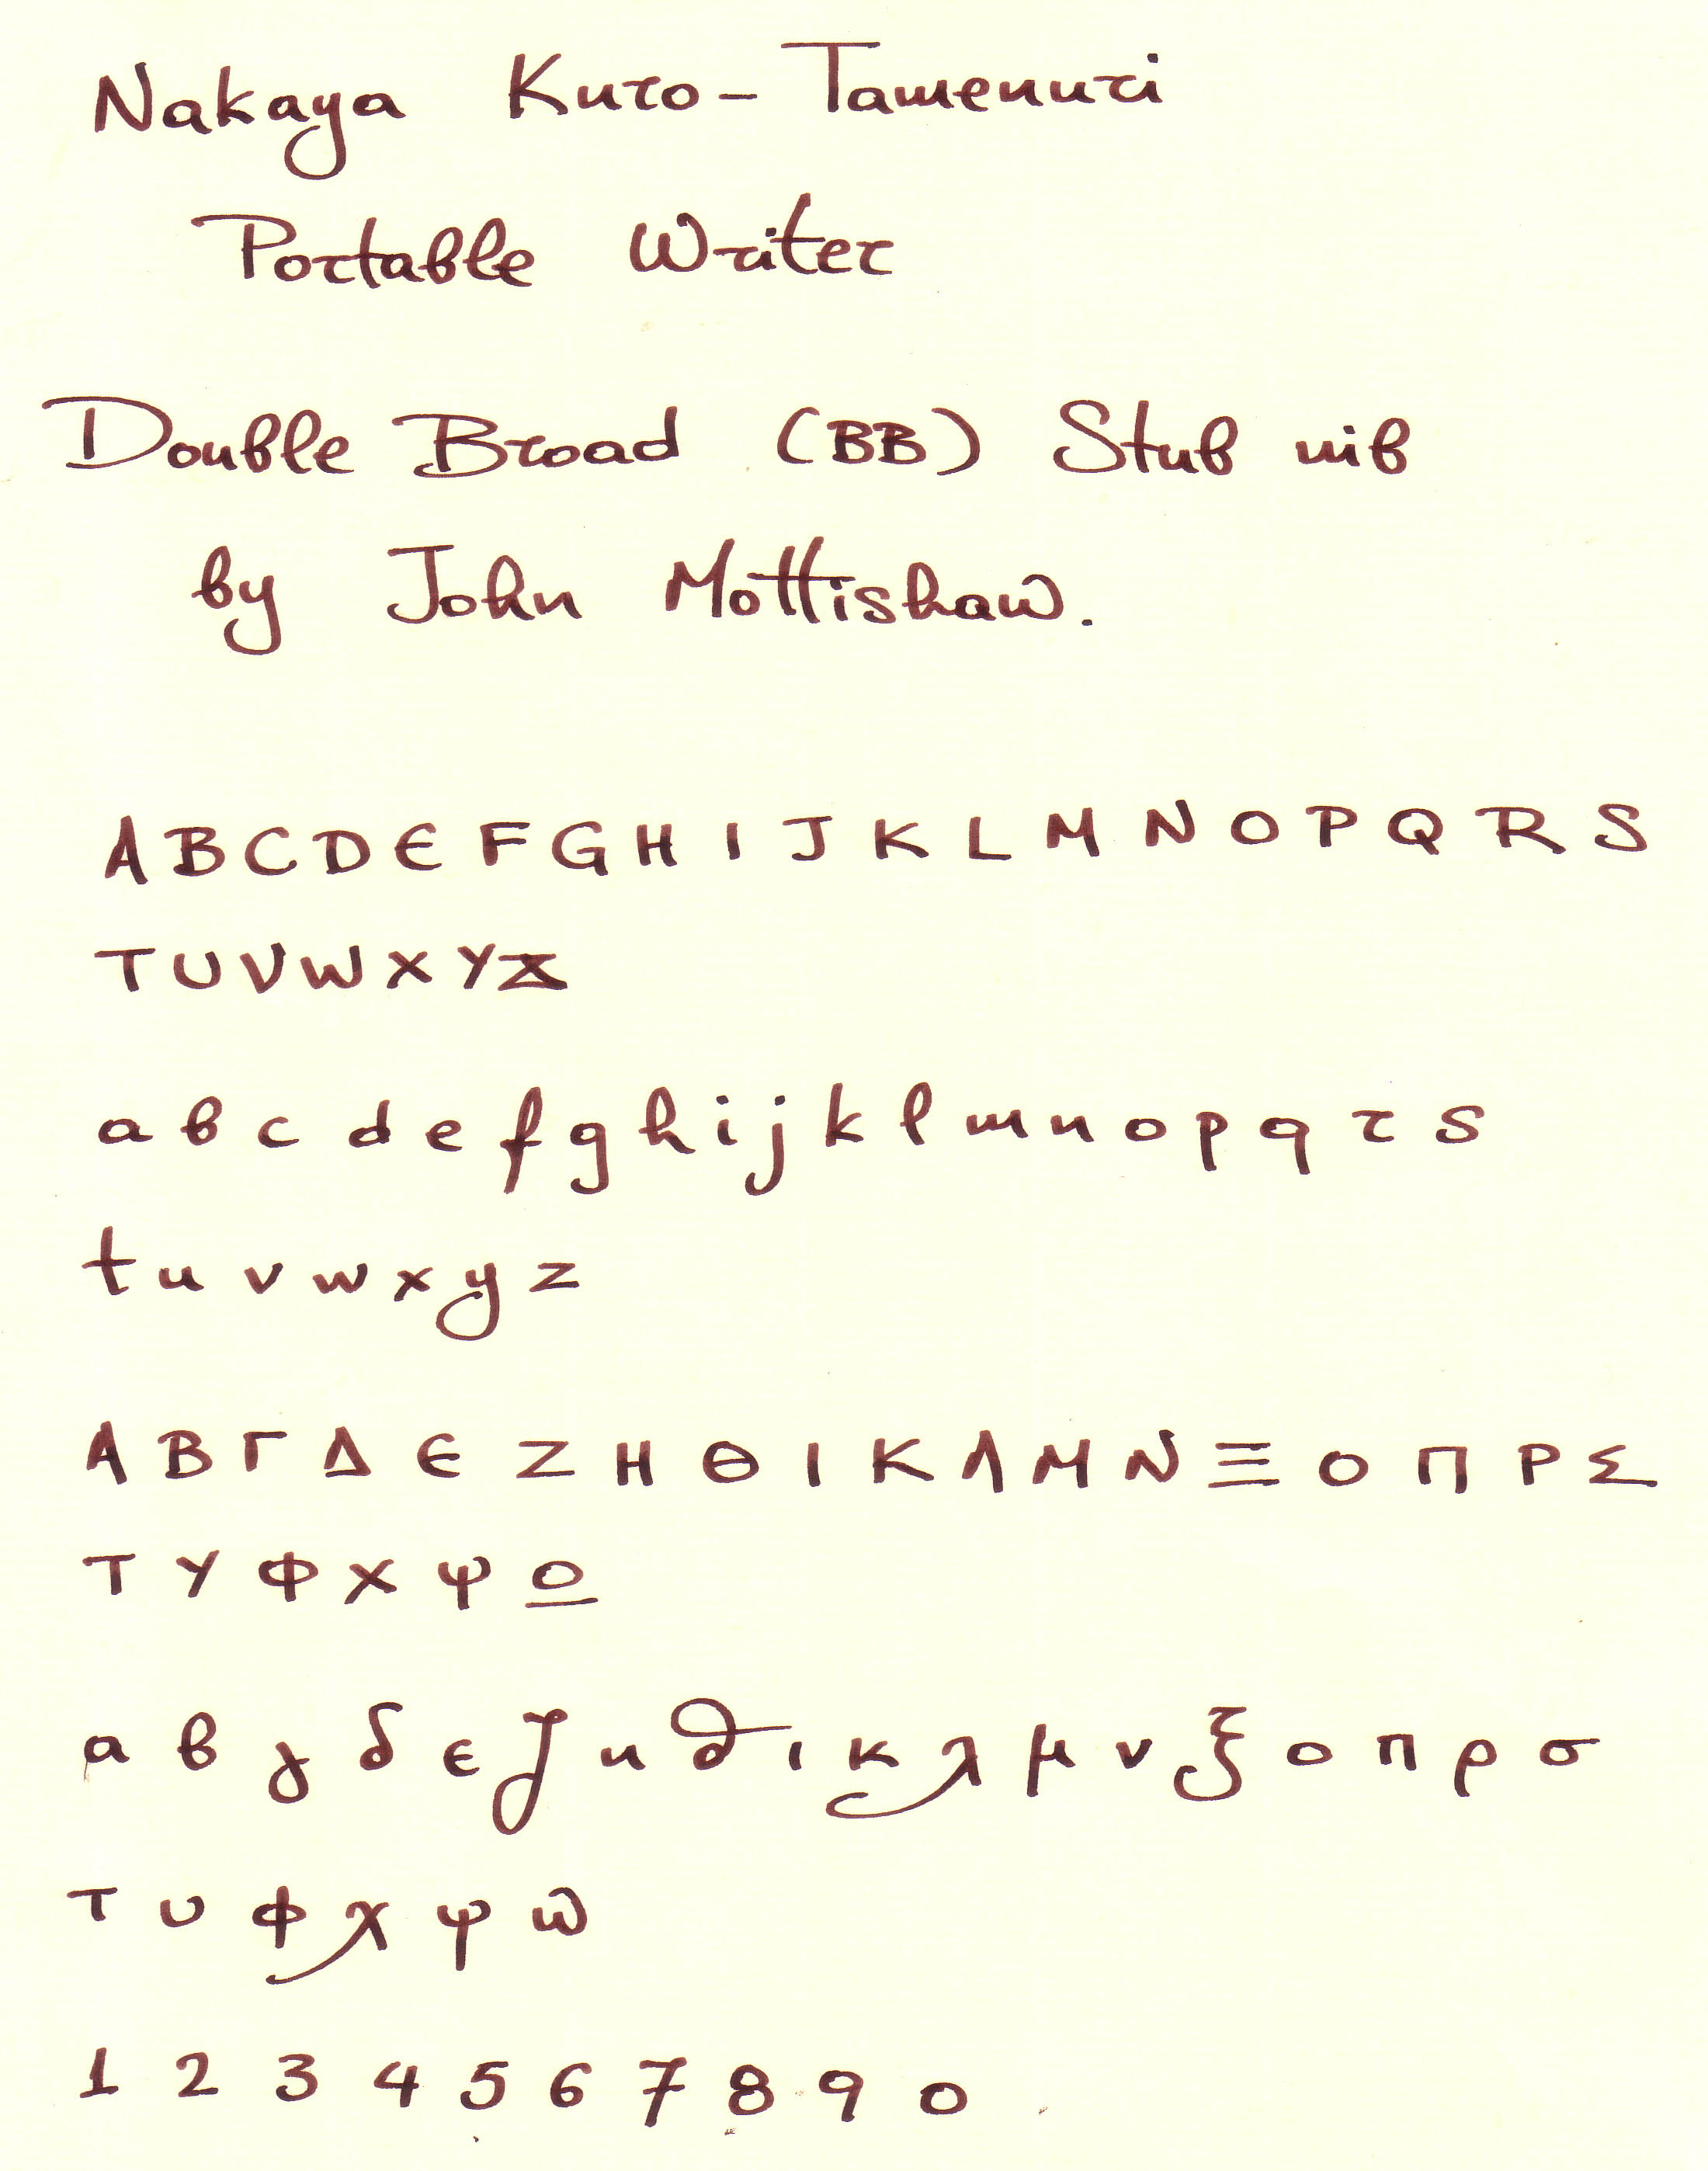 Nakaya Kuro-Tamenuri
Portable Writer
Double Broad (BB) Stub nib
by John Mottishaw.
A B C D E F G H I J K L M N O P Q R S
T U V W X Y Z
a b c d e f g h i j k l m n o p q r s
t u v w x y z
Α Β Γ Δ Ε Ζ Η Θ Ι Κ Λ Μ Ν Ξ Ο Π Ρ Σ
Τ Υ Φ Χ Ψ Ω
α β γ δ ε ζ η θ ι κ λ μ ν ξ ο π ρ σ
τ υ φ χ ψ ω
1 2 3 4 5 6 7 8 9 0